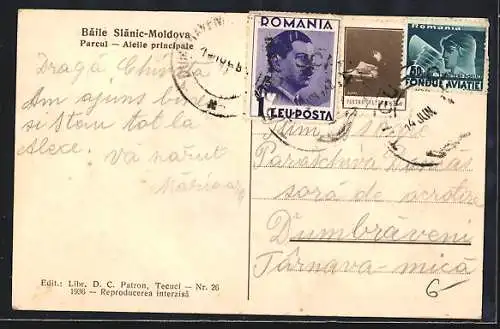 Băile Slănic-Moldova
Parcul - Aleile principale
Dragă
Am ajuns bine
și stau tot la
Alexe. Vă sărut
ROMANIA
1 LEU-POSTA
Romania
FONDUL AVIATIEI
14 JUN.
Paraschiva
soră de ocrotire
Dumbrăveni
Târnava-mică
6-
Edit.: Libr. D. C. Patron, Tecuci - Nr. 26
1936 - Reproducerea interzisă